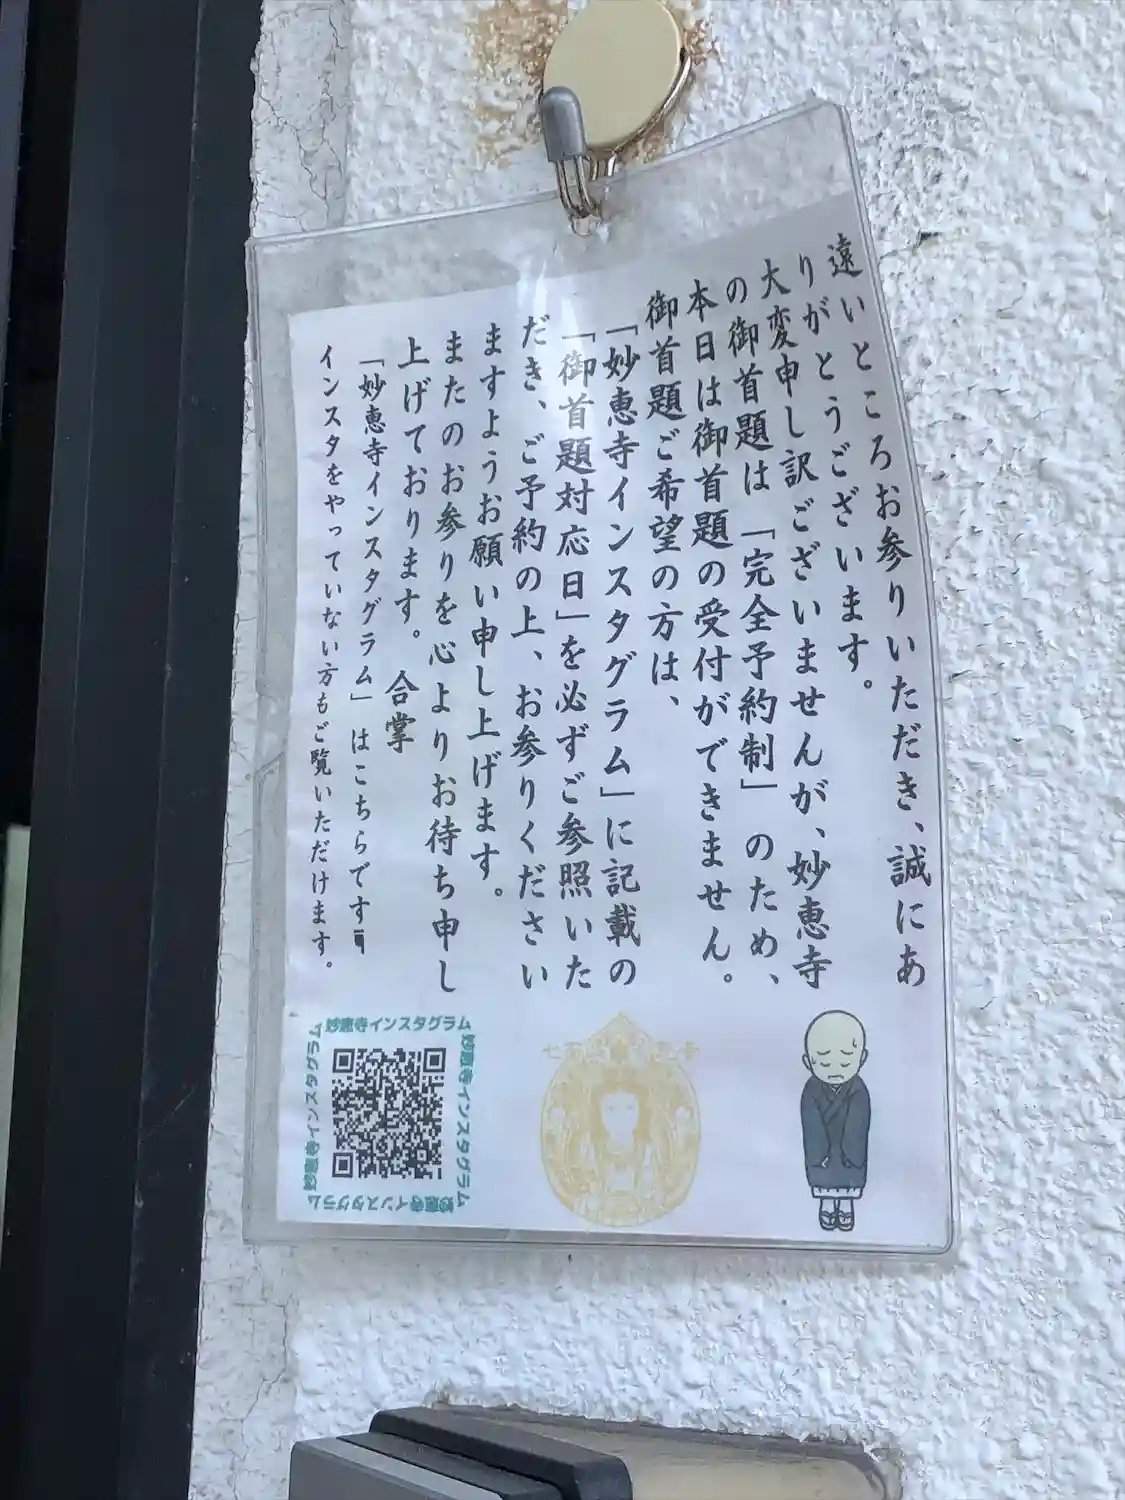 遠いところお参りいただき、誠にあ
りがとうございます。
大変申し訳ございませんが、妙恵寺
の御首題は「完全予約制」のため、
本日は御首題の受付ができません。
御首題ご希望の方は、
「妙恵寺インスタグラム」に記載の
「御首題対応日」を必ずご参照いた
だき、ご予約の上、お参りください
ますようお願い申し上げます。
またのお参りを心よりお待ち申し
上げております。 合掌
「妙恵寺インスタグラム」はこちらです☟
インスタをやっていない方もご覧いただけます。
妙恵寺インスタグラム
妙恵寺インスタグラム
妙恵寺インスタグラム
妙恵寺インスタグラム